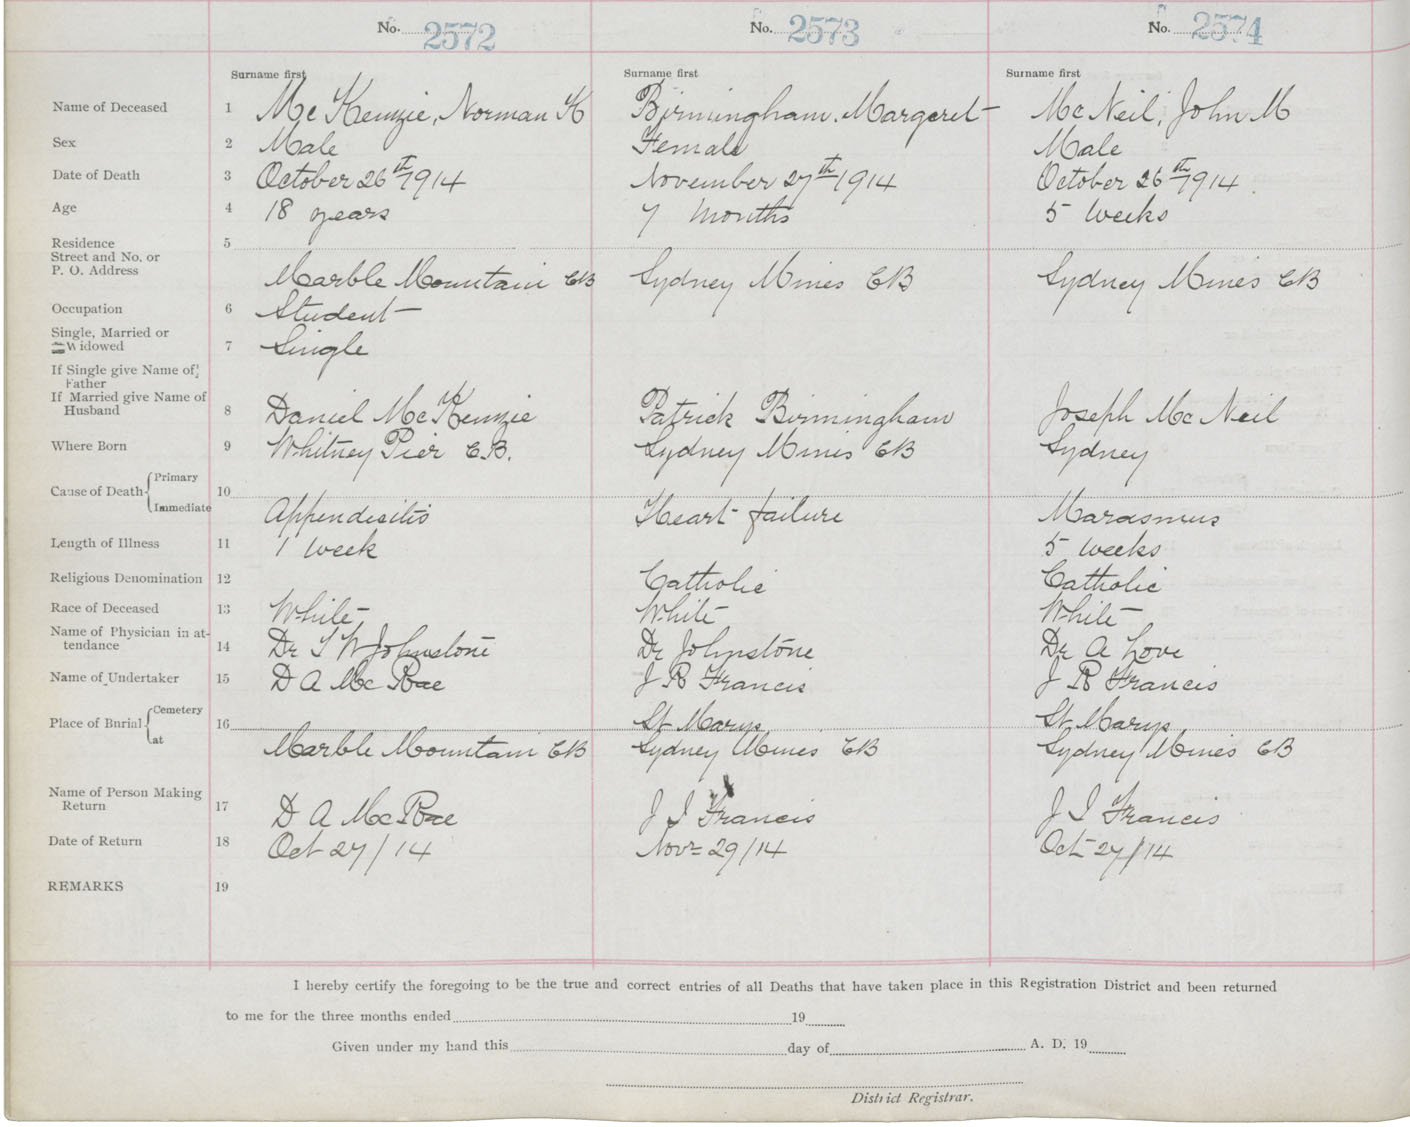 No. 2572 No. 2573 No. 2574
Surname first Surname first Surname first
Name of Deceased 1 McKenzie, Norman K Birmingham, Margaret McNeil, John M
Sex 2 Male Female Male
Date of Death 3 October 26th 1914 November 27th 1914 October 26th 1914
Age 4 18 years 7 Months 5 weeks
Residence 5
Street and No. or
P. O. Address Marble Mountain CB Sydney Mines CB Sydney Mines CB
Occupation 6 Student
Single, Married or
Widowed 7 Single
If Single give Name of
Father
If Married give Name of
Husband 8 Daniel McKenzie Patrick Birmingham Joseph McNeil
Where Born 9 Whitney Pier C.B. Sydney Mines CB Sydney
Cause of Death Primary 10
Immediate Appendisitis Heart failure Marasmus
Length of Illness 11 1 week 5 weeks
Religious Denomination 12 Catholic Catholic
Race of Deceased 13 White White White
Name of Physician in at-
tendance 14 Dr T W Johnstone Dr Johnstone Dr A Love
Name of Undertaker 15 D A McRae J R Francis J R Francis
Place of Burial Cemetery 16 St Marys St Marys
at Marble Mountain CB Sydney Mines CB Sydney Mines CB
Name of Person Making
Return 17 D A McRae J I Francis J I Francis
Date of Return 18 Oct 27/14 Novr 29/14 Oct 27/14
REMARKS 19
I hereby certify the foregoing to be the true and correct entries of all Deaths that have taken place in this Registration District and been returned
to me for the three months ended 19
Given under my hand this day of A. D. 19
District Registrar.